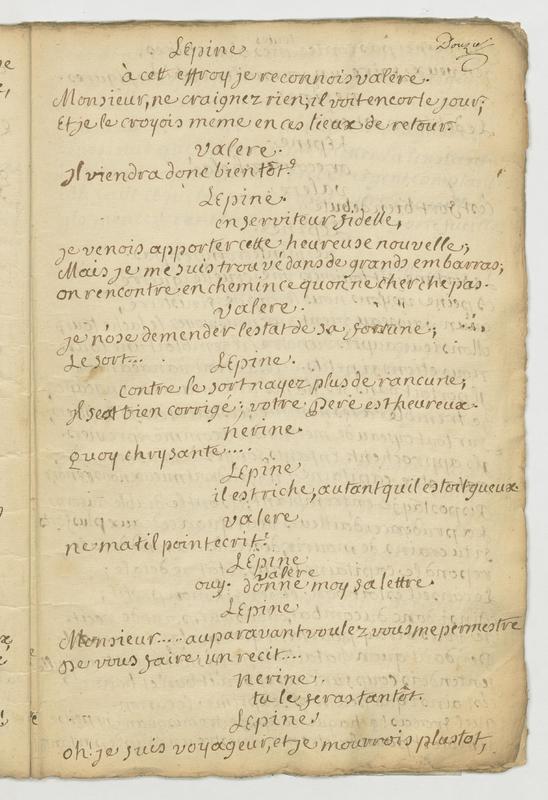 Douze
Lepine
à cett effroy je reconnois valere.
Monsieur, ne craignez rien; il voit encor le jour;
Et je le croyois meme en ces lieux de retour.
valere.
Il viendra donc bientôt?
Lepine.
en serviteur fidelle,
je venois apporter cette heureuse nouvelle;
Mais je me suis trouvé dans de grands embarras;
on rencontre en chemin ce quon ne cherche pas.
valere.
je nose demender lestat de sa fortune;
Le sort...
Lepine.
contre le sort nayez plus de rancune;
Il sest bien corrigé; votre Pere est heureux.
nerine.
quoy chrysante....
Lepine
il est riche, autant quil estoit gueux.
valere
ne matil point ecrit?
Lepine
ouy.
valere
donne moy sa lettre.
Lepine
Monsieur.... auparavant voulez vous me permestre
De vous faire un recit....
nerine.
tu le feras tantôt.
Lepine.
oh! je suis voyageur, et je mourrois plustot,